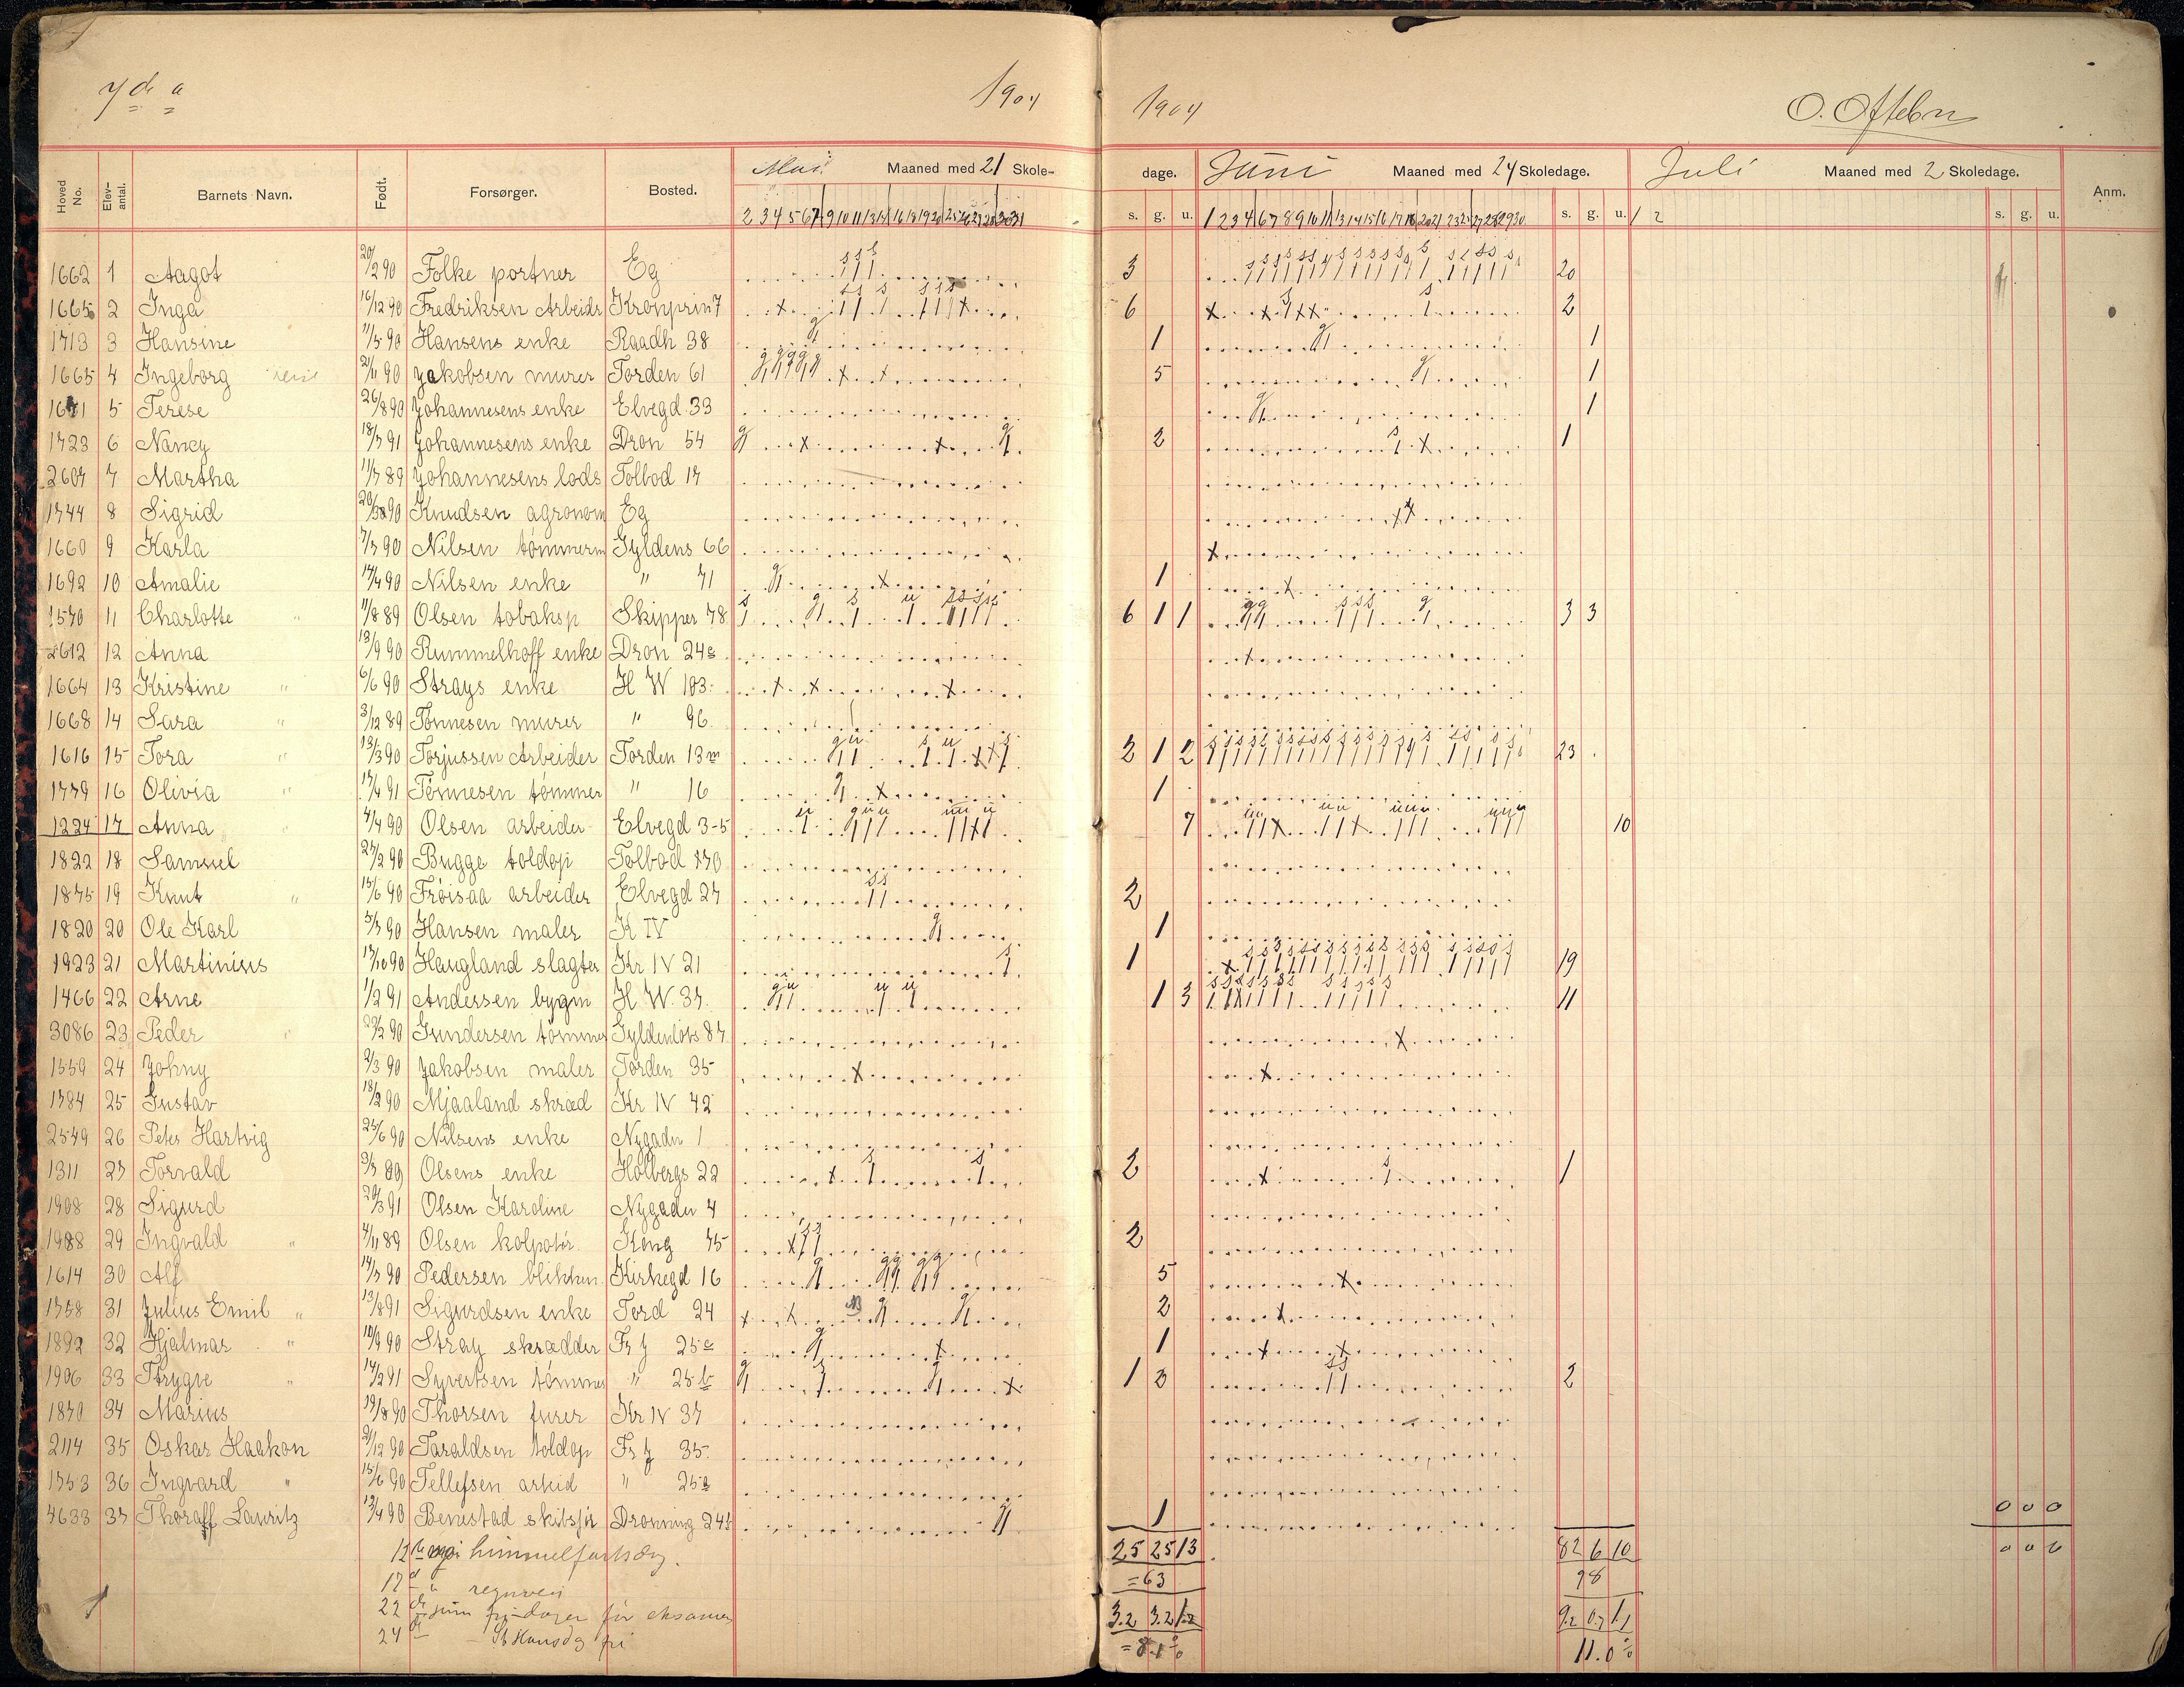 7de a
1904
1904
O. Oftebro
Hoved No. Elev-antal. Barnets Navn. Født. Forsørger. Bosted. Mai Maaned med 21 Skole-
dage. Juni Maaned med 24 Skoledage. Juli Maaned med 2 Skoledage. Anm.
s. g. u. s. g. u. 1 2 s. g. u.
1662 1 Aagot 20/2 90 Folke portner Eg 3 20
1665 2 Inga 16/12 90 Fredriksen Arbeider Kronprin 7 6 2
1713 3 Hansine 11/5 90 Hansens enke Raadh 38 1 1
1665 4 Ingeborg 21/11 90 Jakobsen murer Torden 61 5 1
5 Terese 26/8 90 Johannesens enke Elvegd 33 1
1723 6 Nancy 18/7 91 Johannesens enke Dron 54 2 1
2607 7 Martha 11/7 89 Johannesens lods Tolbod 17
1744 8 Sigrid Knudsen agronom Eg
1660 9 Karla 7/7 90 Nilsen tømmerm Gyldens 66
1692 10 Amalie 17/4 90 Nilsen enke " 71 1
1570 11 Charlotte " 11/8 89 Olsen tobaksp Skipper 78 6 1 1 3 3
2612 12 Anna 13/9 90 Rummelhoff enke Dron 24a
1664 13 Kristine " 6/6 90 Strays enke H W 103
1668 14 Sara " 3/12 89 Tønnesen murer " 96
1616 15 Tora " 13/3 90 Torjussen Arbeider Torden 13 2 1 2 23
1779 16 Olivia " 17/4 91 Tønnesen tømmer " 16 1
1224 17 Anna " 4/4 90 Olsen arbeider Elvegd 3-5 7 10
1822 18 Samuel 25/2 90 Bugge toldop Tolbod
1875 19 Knut " 15/6 90 Frøisaa arbeider Elvegd 27 2
1820 20 Ole Karl 5/7 90 Hansen maler K IV 1
1923 21 Martinius 17/10 90 Haugland slagter Kr IV 21 1 19
1466 22 Arne 1/2 91 Andersen bygm H. W. 37 1 3 11
3086 23 Peder " 29/2 90 Gundersen tømmer Gyldenløvs 87
1559 24 Johny 2/3 90 Jakobsen maler Torden 35
1784 25 Gustav 18/2 90 Mjaaland skræd Kr IV 42
2549 26 Peter Hartvig 25/6 90 Nilsens enke Nygaden 1
1311 27 Torvald Olsens enke Holbergs 22 2 1
1908 28 Sigurd 20/3 91 Olsen Karoline Nygaden 4
1988 29 Ingvald " 4/11 89 Olsen kolportør Kong 75 2
1614 30 Alf 17/7 90 Pedersen blikken Kirkegd 16 5
1758 31 Julius Emil " 13/8 91 Sigurdsen enke Tord 24 2
1892 32 Hjalmar " 10/9 90 Stray skrædder Fr J 25c 1
1906 33 Trygve " 14/2 91 Syvertsen tømmer " 25b 1 3 2
1870 34 Marius 19/8 90 Thorsen furer Kr IV 37
2114 35 Oskar Haakon 21/12 90 Taraldsen toldop Fr J 35
1753 36 Ingvard " 15/6 90 Tellefsen arbeid " 25a
4633 37 Thoralf Lauritz 13/4 90 Benestad skibsfør Dronning 24b 1 0 0 0
12te mai himmelfartsdag. 25 25 13 82 6 10 0 0 0
17d " =63 98
22de juni fridager før eksamen 3.2 3.2 1.7 9.2 0.7 1.1
24d St Hansdag fri =8.1% 11.0%